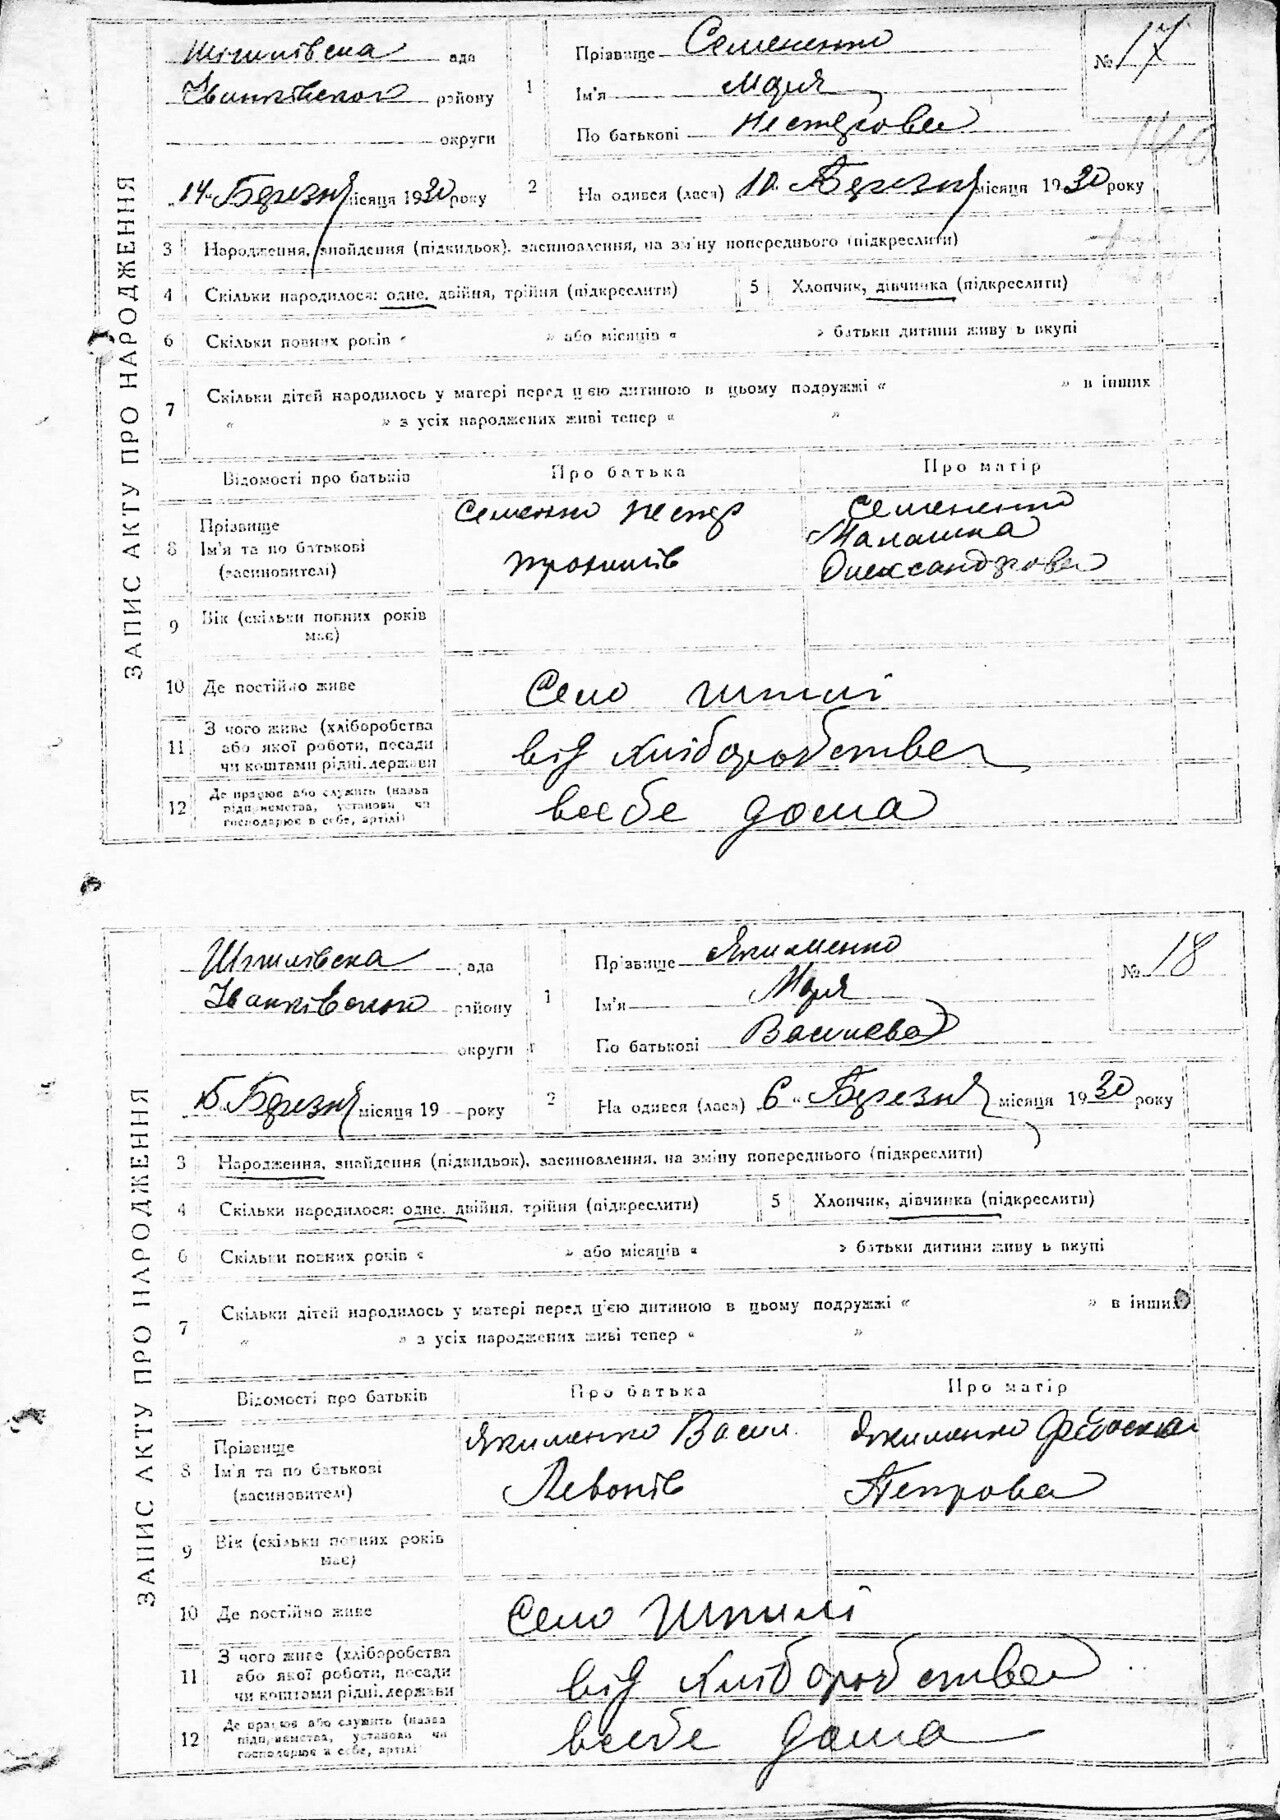 ЗАПИС АКТУ ПРО НАРОДЖЕННЯ
Шпилівска рада
Іванківского району
округи
"14" Березня місяця 1930 року
1
Прізвище Семененко
Ім'я Марія
По батькові Нестерова
№ 17
140
2
На одився (лася) "10" Березня місяця 1930 року
3 Народження, знайдення (підкидьок), засиновлення, на зміну попереднього (підкреслити)
4 Скільки народилося: одне, двійня, трійня (підкреслити)
5 Хлопчик, дівчинка (підкреслити)
6 Скільки повних років « » або місяців « » батьки дитини живу ь вкупі
7 Скільки дітей народилось у матері перед цією дитиною в цьому подружжі « » в інших
« » з усіх народжених живі тепер « »
Відомості про батьків Про батька Про матір
8 Прізвище
Ім'я та по батькові
(засиновителі)
Семенко Нестер
Трохимів
Семененко
Малашка
Олександрова
9 Вік (скільки повних років
має)
10 Де постійно живе Село Шпилі
11 З чого живе (хліборобства
або якої роботи, посади
чи коштами рідні, держави
від хліборобства
12 Де працює або служить (назва
підприємства, установи чи
господарює в себе, артілі)
всебе дома
ЗАПИС АКТУ ПРО НАРОДЖЕННЯ
Шпилівска рада
Іванківского району
округи
"15" Березня місяця 19 року
1
Прізвище Якименко
Ім'я Марія
По батькові Василева
№ 18
2
На одився (лася) 6 " Березня місяця 1930 року
3 Народження, знайдення (підкидьок), засиновлення, на зміну попереднього (підкреслити)
4 Скільки народилося: одне, двійня, трійня (підкреслити)
5 Хлопчик, дівчинка (підкреслити)
6 Скільки повних років « » або місяців « » батьки дитини живу ь вкупі
7 Скільки дітей народилось у матері перед ц'єю дитиною в цьому подружжі « » в інших
« » з усіх народжених живі тепер « »
Відомості про батьків Про батька Про матір
8 Прізвище
Ім'я та по батькові
(засиновителі)
Якименко Васил
Левонів
Якименко
Петрова
9 Вік (скільки повних років
має)
10 Де постійно живе Село Шпилі
11 З чого живе (хліборобства
або якої роботи, посади
чи коштами рідні, держави
від хліборобства
12 Де працює або служить (назва
підприємства, установи чи
господарює в себе, артілі
всебе дома